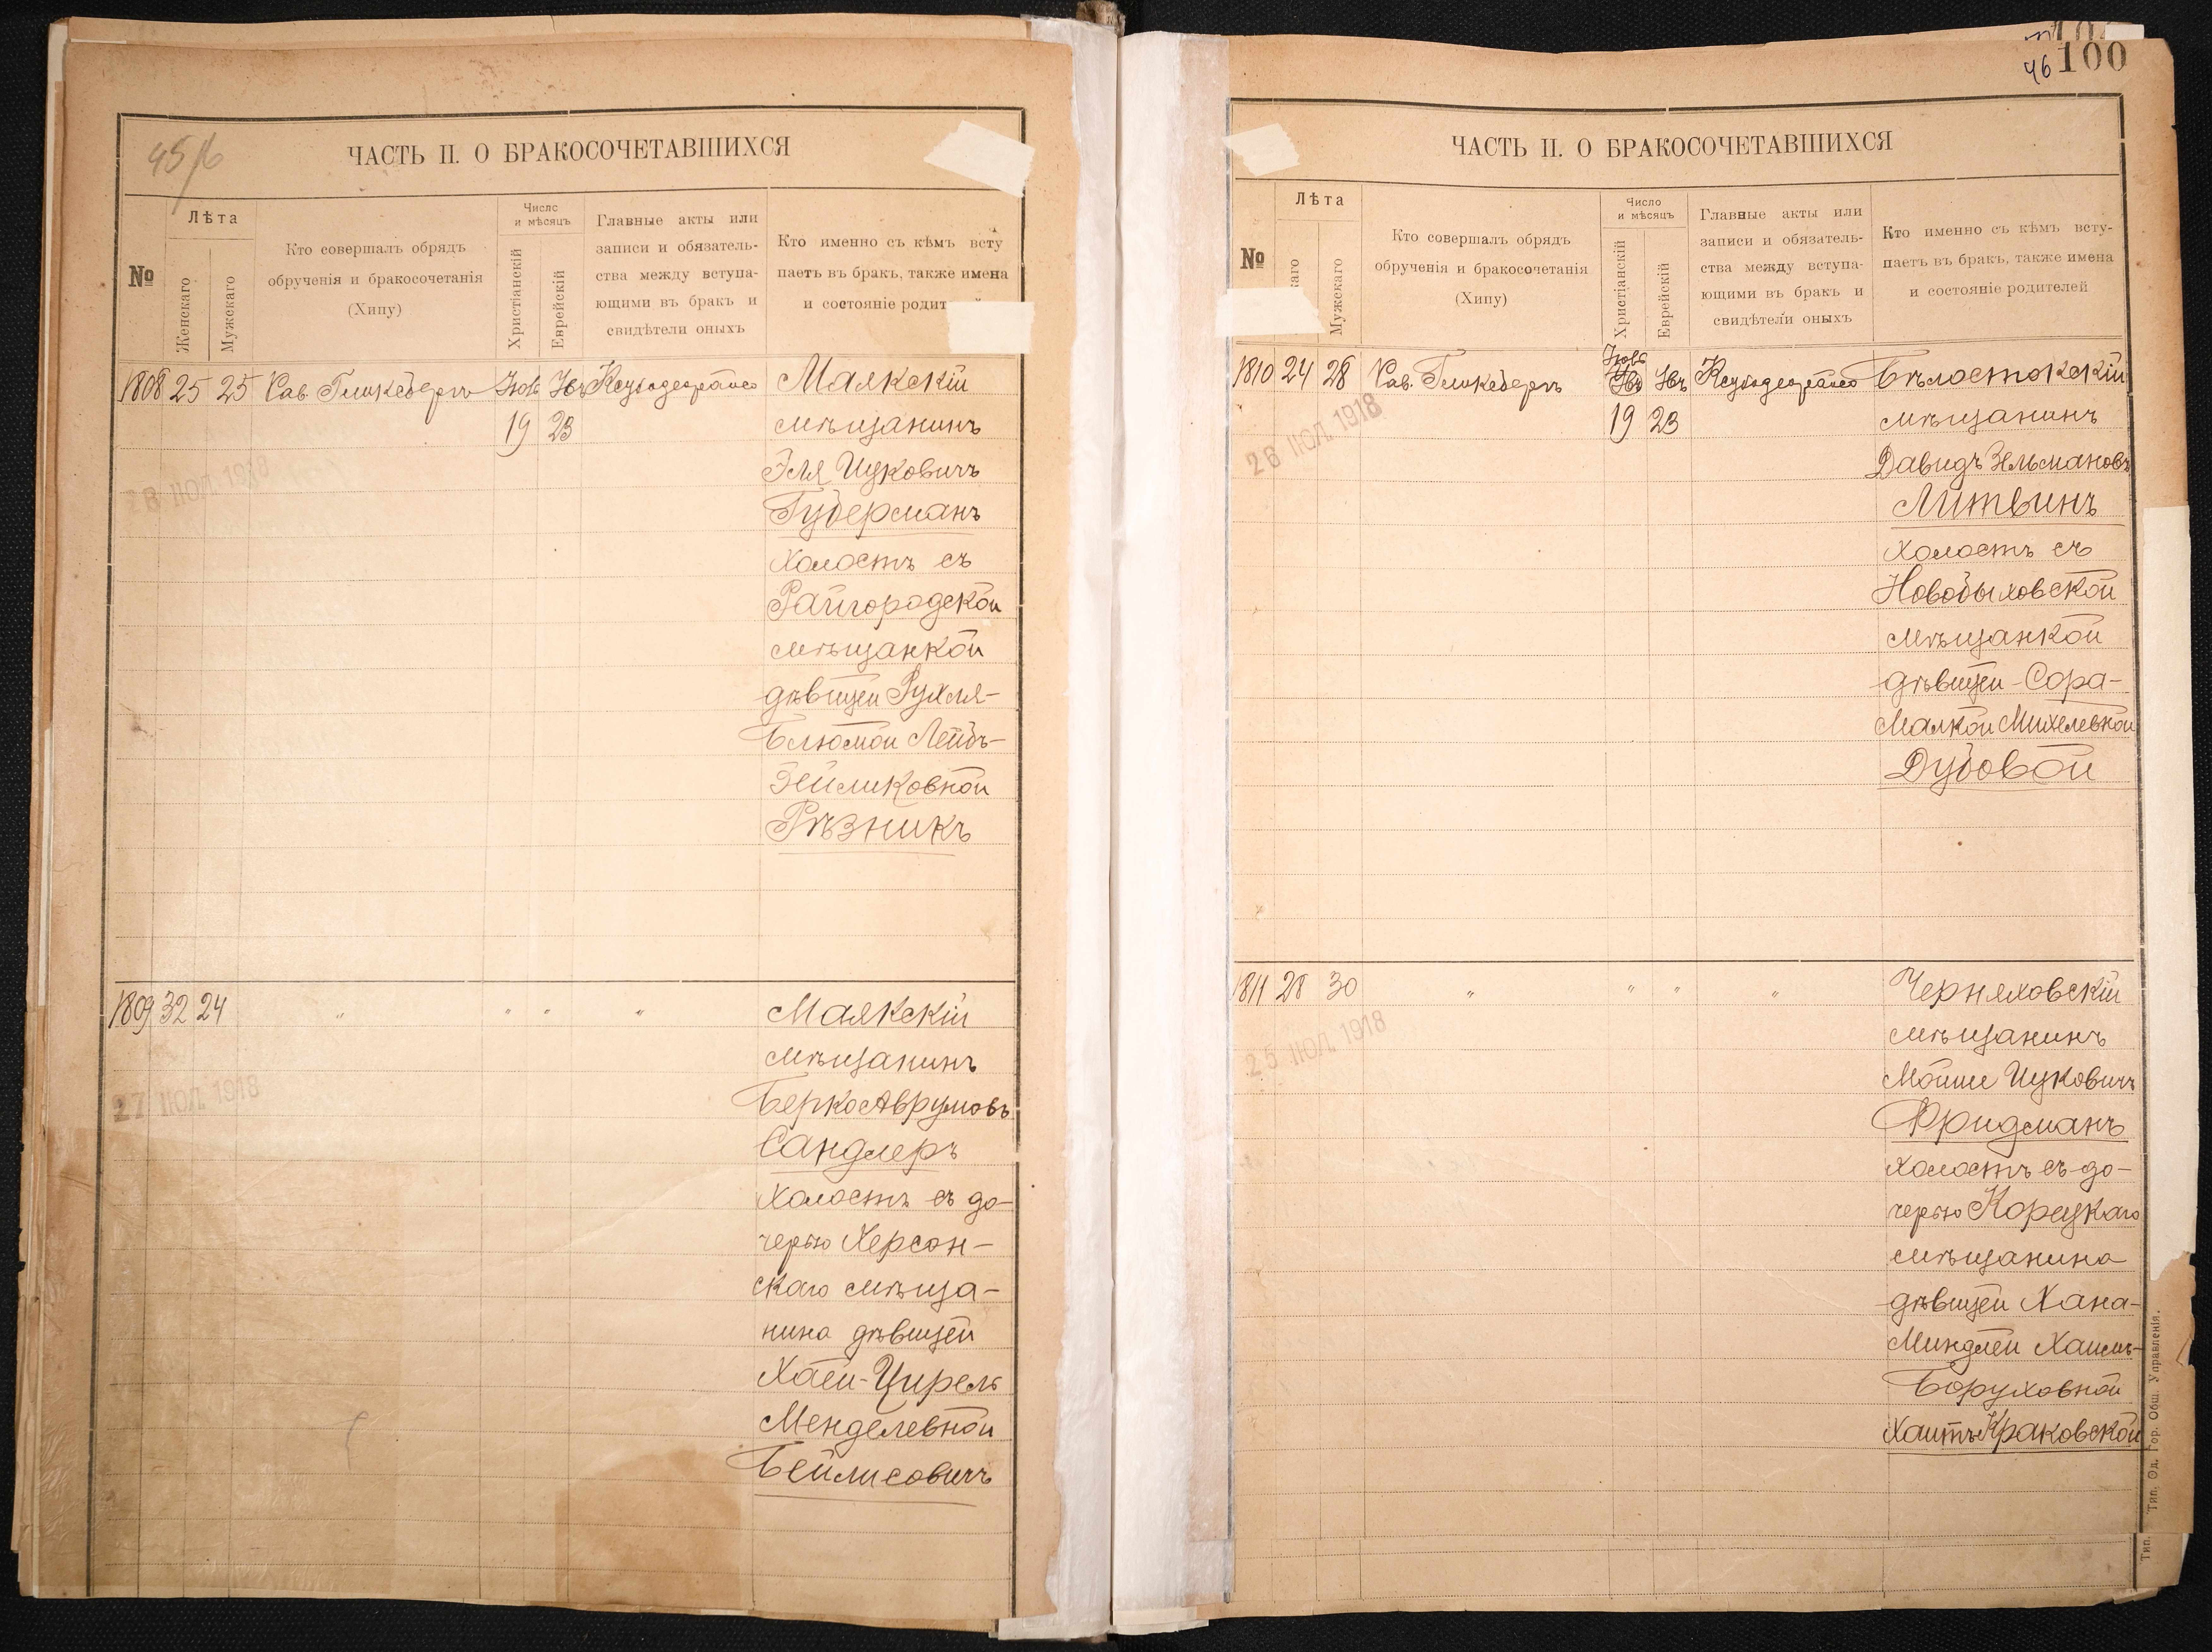 45/б
ЧАСТЬ II. О БРАКОСОЧЕТАВШИХСЯ
№
Лѣта
Женскаго
Мужскаго
Кто совершалъ обрядъ
обрученія и бракосочетанія
(Хипу)
Число
и мѣсяцъ
Христіанскій
Еврейскій
Главные акты или
записи и обязатель-
ства между вступа-
ющими въ бракъ и
свидѣтели оныхъ
Кто именно съ кѣмъ всту
паетъ въ бракъ, также имена
и состояніе родит
1808 25 25 Рав. Гликсбергъ Маякскій
19 23 мѣщанинъ
Эля Ицковичъ
28 ІЮЛ 1918
Губерманъ
холостъ съ
Райгородской
мѣщанкой
дѣвицей Рухля-
Блюмой Лейбъ-
Зейликовной
Рѣзникъ
1809 32 24 " " " " Маякскій
мѣщанинъ
27 ІЮЛ 1918
Берко Аврумовъ
Сандлеръ
холостъ съ до-
черью Херсон-
скаго мѣща-
нина дѣвицей
Хаей-Цирель
Менделевной
Бейлисовичъ
46 100
ЧАСТЬ II. О БРАКОСОЧЕТАВШИХСЯ
№
Лѣта
каго
Мужскаго
Кто совершалъ обрядъ
обрученія и бракосочетанія
(Хипу)
Число
и мѣсяцъ
Христіанскій
Еврейскій
Главные акты или
записи и обязатель-
ства между вступа-
ющими въ бракъ и
свидѣтели оныхъ
Кто именно съ кѣмъ всту-
паетъ въ бракъ, также имена
и состояніе родителей
1810 24 28 Рав. Гликсбергъ Бѣлостокскій
19 23 мѣщанинъ
26 ІЮЛ 1918
Давидъ Зельмановъ
Литвинъ
холостъ съ
Новобыховской
мѣщанкой
дѣвицей Сора-
Малкой Михелевной
Дубовой
1811 28 30 " " " " Черняховскій
мѣщанинъ
25 ІЮЛ 1918
Мойше Ицковичъ
Фридманъ
холостъ съ до-
черью Корецкаго
мѣщанина
дѣвицей Хана-
Миндлей Хаимъ-
Боруховной
Хаитъ Краковской
Тип. Од. Гор. Общ. Управленія.
Тип.